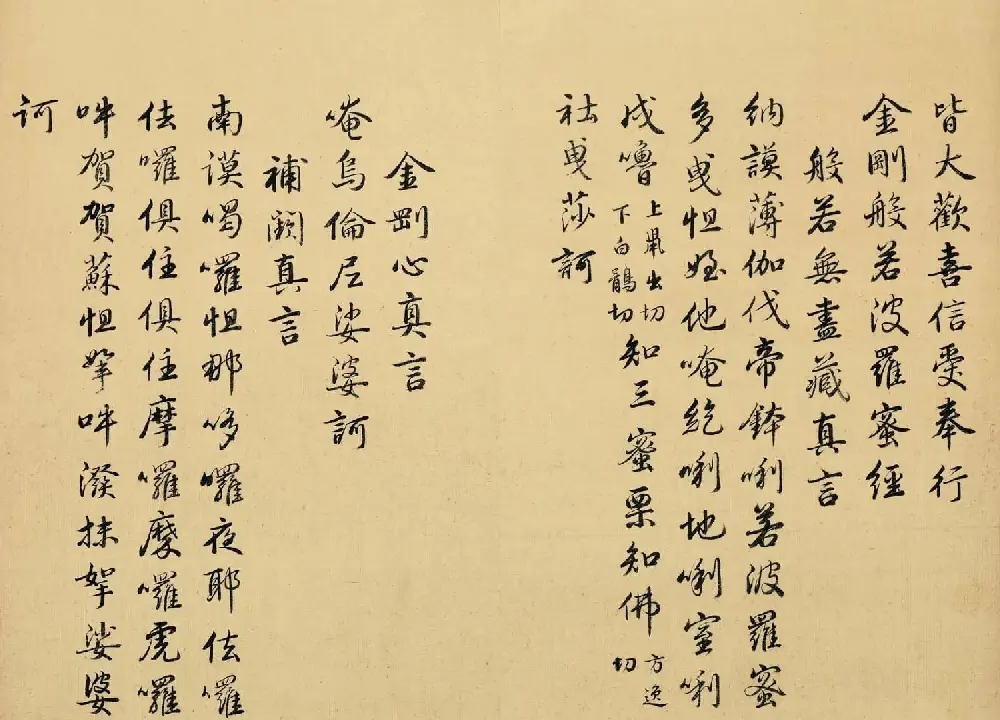 皆大歡喜信受奉行
金剛般若波羅蜜經
般若無盡藏真言
納謨薄伽伐帝鉢唎若波羅蜜
多曳怛姪他唵紇唎地唎室唎
戍嚕上鼡出切下白鶻切知三蜜栗知佛方逸切
社曳莎訶
金剛心真言
唵烏倫尼娑婆訶
補闕真言
南謨喝囉怛那哆囉夜耶佉囉
佉囉俱住俱住摩囉摩囉虎囉
吽賀賀蘇怛拏吽潑抹拏娑婆
訶